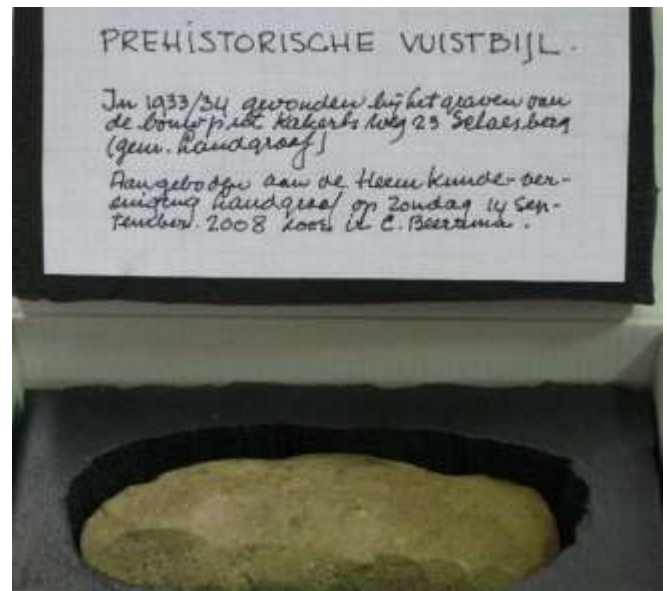 PREHISTORISCHE VUISTBIJL.
In 1933/34 gevonden bij het graven van
de bouwput Kakertsweg 23 Schaesberg
(gem. Landgraaf)
Aangeboden aan de Heemkunde-ver-
eniging Landgraaf op Zondag 14 Sep-
tember. 2008 door C.